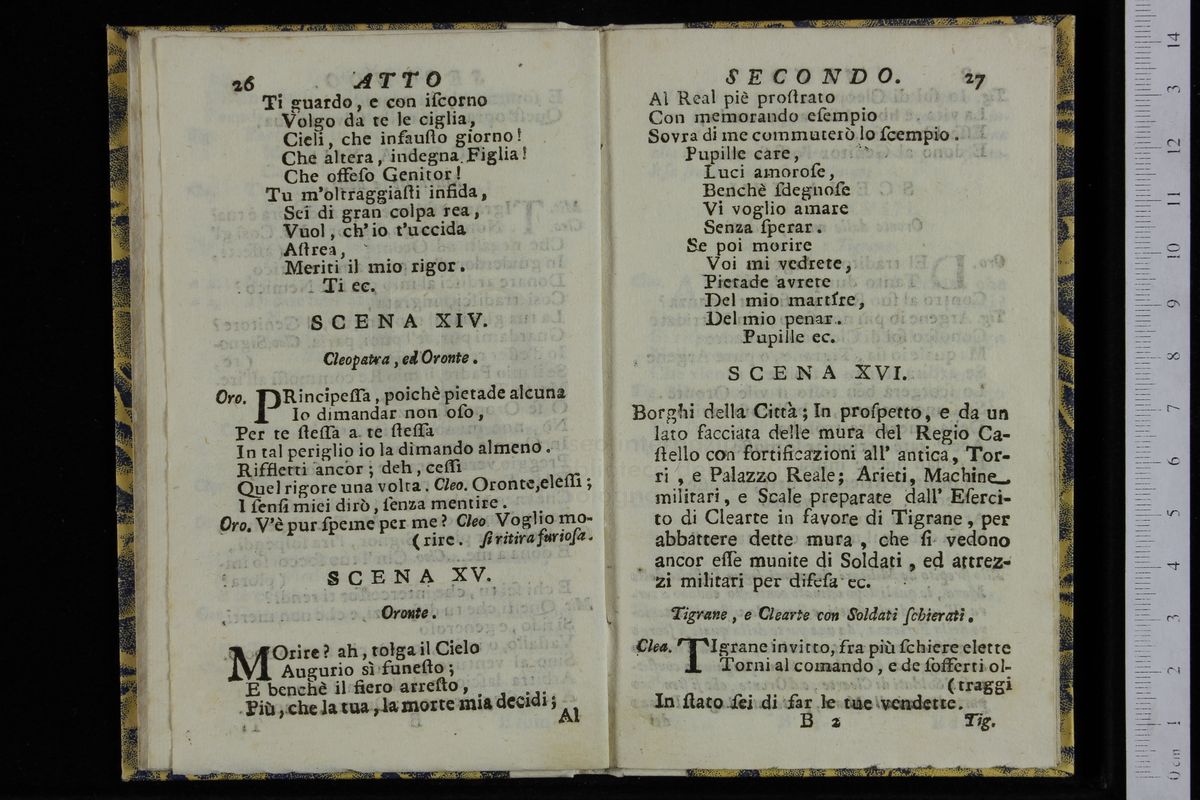 26 ATTO
Ti guardo, e con iſcorno
Volgo da te le ciglia,
Cieli, che infauſto giorno!
Che altera, indegna Figlia!
Che offeſo Genitor!
Tu m'oltraggiaſti infida,
Sei di gran colpa rea,
Vuol, ch'io t'uccida
Aſtrea,
Meriti il mio rigor.
Ti ec.
SCENA XIV.
Cleopatra, ed Oronte.
Oro. PRincipeſſa, poichè pietade alcuna
Io dimandar non oſo,
Per te ſteſſa a te ſteſſa
In tal periglio io la dimando almeno.
Riffletti ancor; deh, ceſſi
Quel rigore una volta. Cleo. Oronte, eleſſi;
I ſenſi miei dirò, ſenza mentire.
Oro. V'è pur ſpeme per me? Cleo Voglio mo-
(rire. ſi ritira furioſa.
SCENA XV.
Oronte.
MOrire? ah, tolga il Cielo
Augurio sì funeſto;
E benchè il fiero arreſto,
Più, che la tua, la morte mia decidi;
Al
SECONDO. 27
Al Real piè proſtrato
Con memorando eſempio
Sovra di me commuterò lo ſcempio.
Pupille care,
Luci amoroſe,
Benchè ſdegnoſe
Vi voglio amare
Senza ſperar.
Se poi morire
Voi mi vedrete,
Pietade avrete
Del mio martire,
Del mio penar.
Pupille ec.
SCENA XVI.
Borghi della Città; In proſpetto, e da un
lato facciata delle mura del Regio Ca-
ſtello con fortificazioni all' antica, Tor-
ri, e Palazzo Reale; Arieti, Machine
militari, e Scale preparate dall' Eſerci-
to di Clearte in favore di Tigrane, per
abbattere dette mura, che ſi vedono
ancor eſſe munite di Soldati, ed attrez-
zi militari per difeſa ec.
Tigrane, e Clearte con Soldati ſchierati.
Clea. TIgrane invitto, fra più ſchiere elette
Torni al comando, e de ſofferti ol-
(traggi
In ſtato ſei di far le tue vendette.
B 2 Tig.